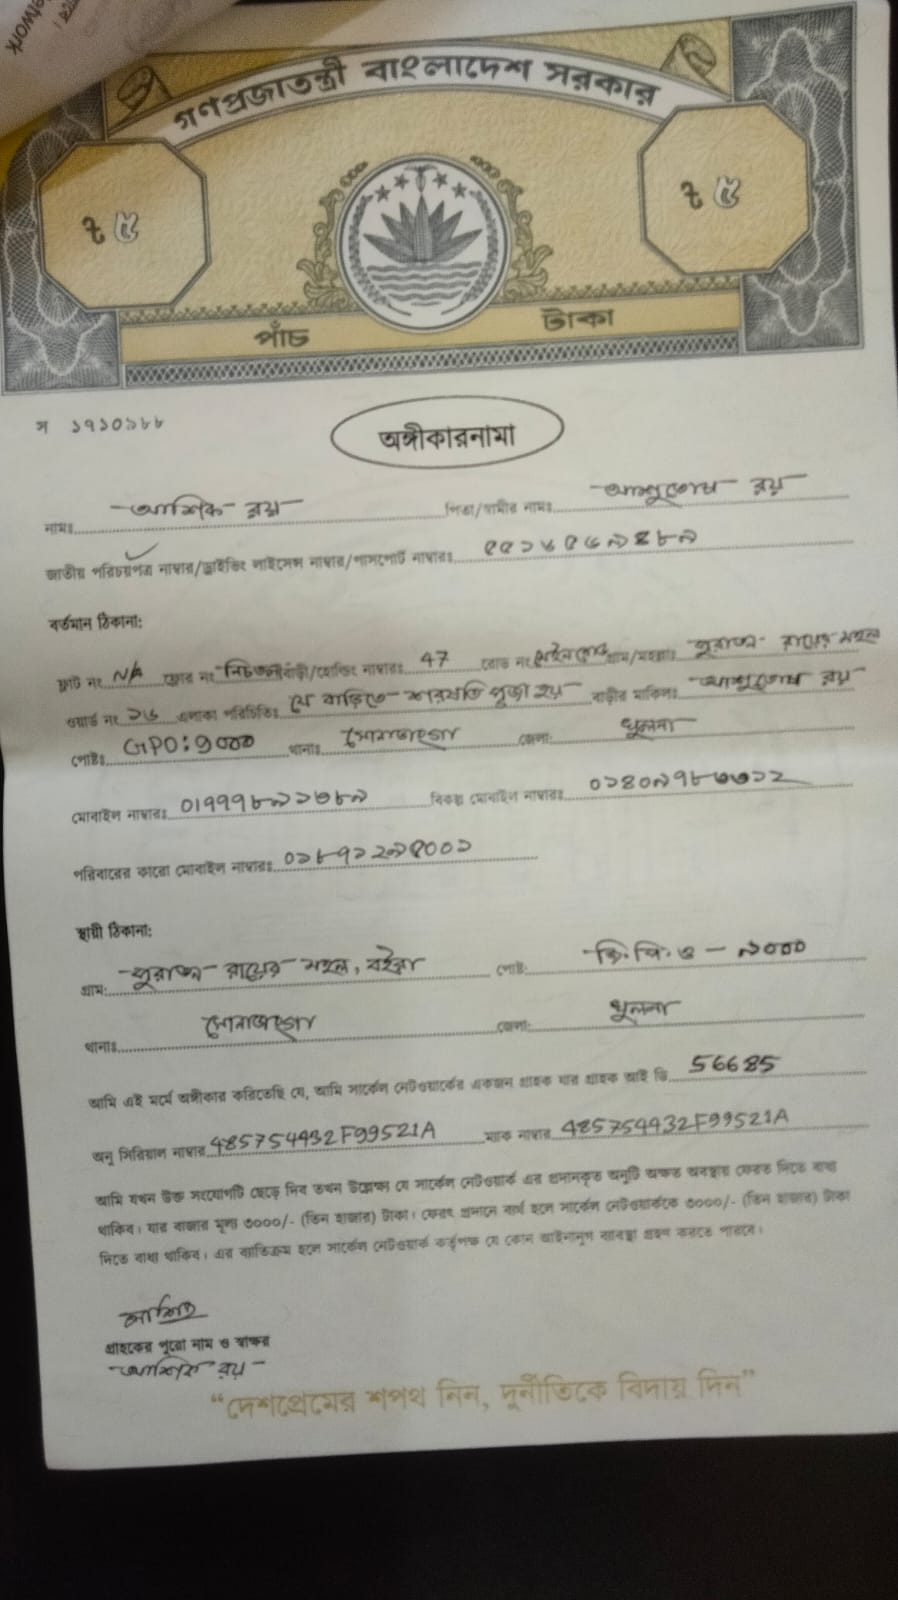 গণপ্রজাতন্ত্রী বাংলাদেশ সরকার
৳ ৫ ৳ ৫
পাঁচ টাকা
স ১৭১০৯৮৮
অঙ্গীকারনামা
নামঃ আশিক রয় পিতা/স্বামীর নামঃ আশুতোষ রয়
জাতীয় পরিচয়পত্র নাম্বার/ড্রাইভিং লাইসেন্স নাম্বার/পাসপোর্ট নাম্বারঃ ৫৫১৬৫৬৯৪৮৯
বর্তমান ঠিকানা:
ফ্লাট নং N/A ফ্লোর নং নিচতলা বাড়ী/হোল্ডিং নাম্বারঃ 47 রোড নং মেইনরোড গ্রাম/মহল্লাঃ পুরাতন রায়ের মহল
ওয়ার্ড নং ১৬ এলাকা পরিচিতিঃ যে বাড়িতে পূজা হয় বাড়ীর মালিকঃ আশুতোষ রয়
পোষ্টঃ GPO: 9000 থানাঃ সোনাডাঙ্গা জেলা: খুলনা
মোবাইল নাম্বারঃ 01999৮৯১৩৮৯ বিকল্প মোবাইল নাম্বারঃ ০১৪০৯৭৮৬৩১২
পরিবারের কারো মোবাইল নাম্বারঃ ০১৮৭১২৯৫০০১
স্থায়ী ঠিকানা:
গ্রাম: পুরাতন রায়ের মহল, বইরা পোষ্ট: জি.পি.ও - ৯০০০
থানাঃ সোনাডাঙ্গা জেলা: খুলনা
আমি এই মর্মে অঙ্গীকার করিতেছি যে, আমি সার্কেল নেটওয়ার্কের একজন গ্রাহক যার গ্রাহক আই ডি 56685
অনু সিরিয়াল নাম্বার 485754432F99521A ম্যাক নাম্বার 485754432F99521A
আমি যখন উক্ত সংযোগটি ছেড়ে দিব তখন উল্লেক্ষ্য যে সার্কেল নেটওয়ার্ক এর প্রদানকৃত অনুটি অক্ষত অবস্থায় ফেরত দিতে বাধ্য
থাকিব। যার বাজার মূল্য ৩০০০/- (তিন হাজার) টাকা। ফেরৎ প্রদানে ব্যর্থ হলে সার্কেল নেটওয়ার্ককে ৩০০০/- (তিন হাজার) টাকা
দিতে বাধ্য থাকিব। এর ব্যতিক্রম হলে সার্কেল নেটওয়ার্ক কর্তৃপক্ষ যে কোন আইনানুগ ব্যবস্থা গ্রহণ করতে পারবে।
আশিক
গ্রাহকের পুরো নাম ও স্বাক্ষর
আশিক রয়
“দেশপ্রেমের শপথ নিন, দুর্নীতিকে বিদায় দিন”